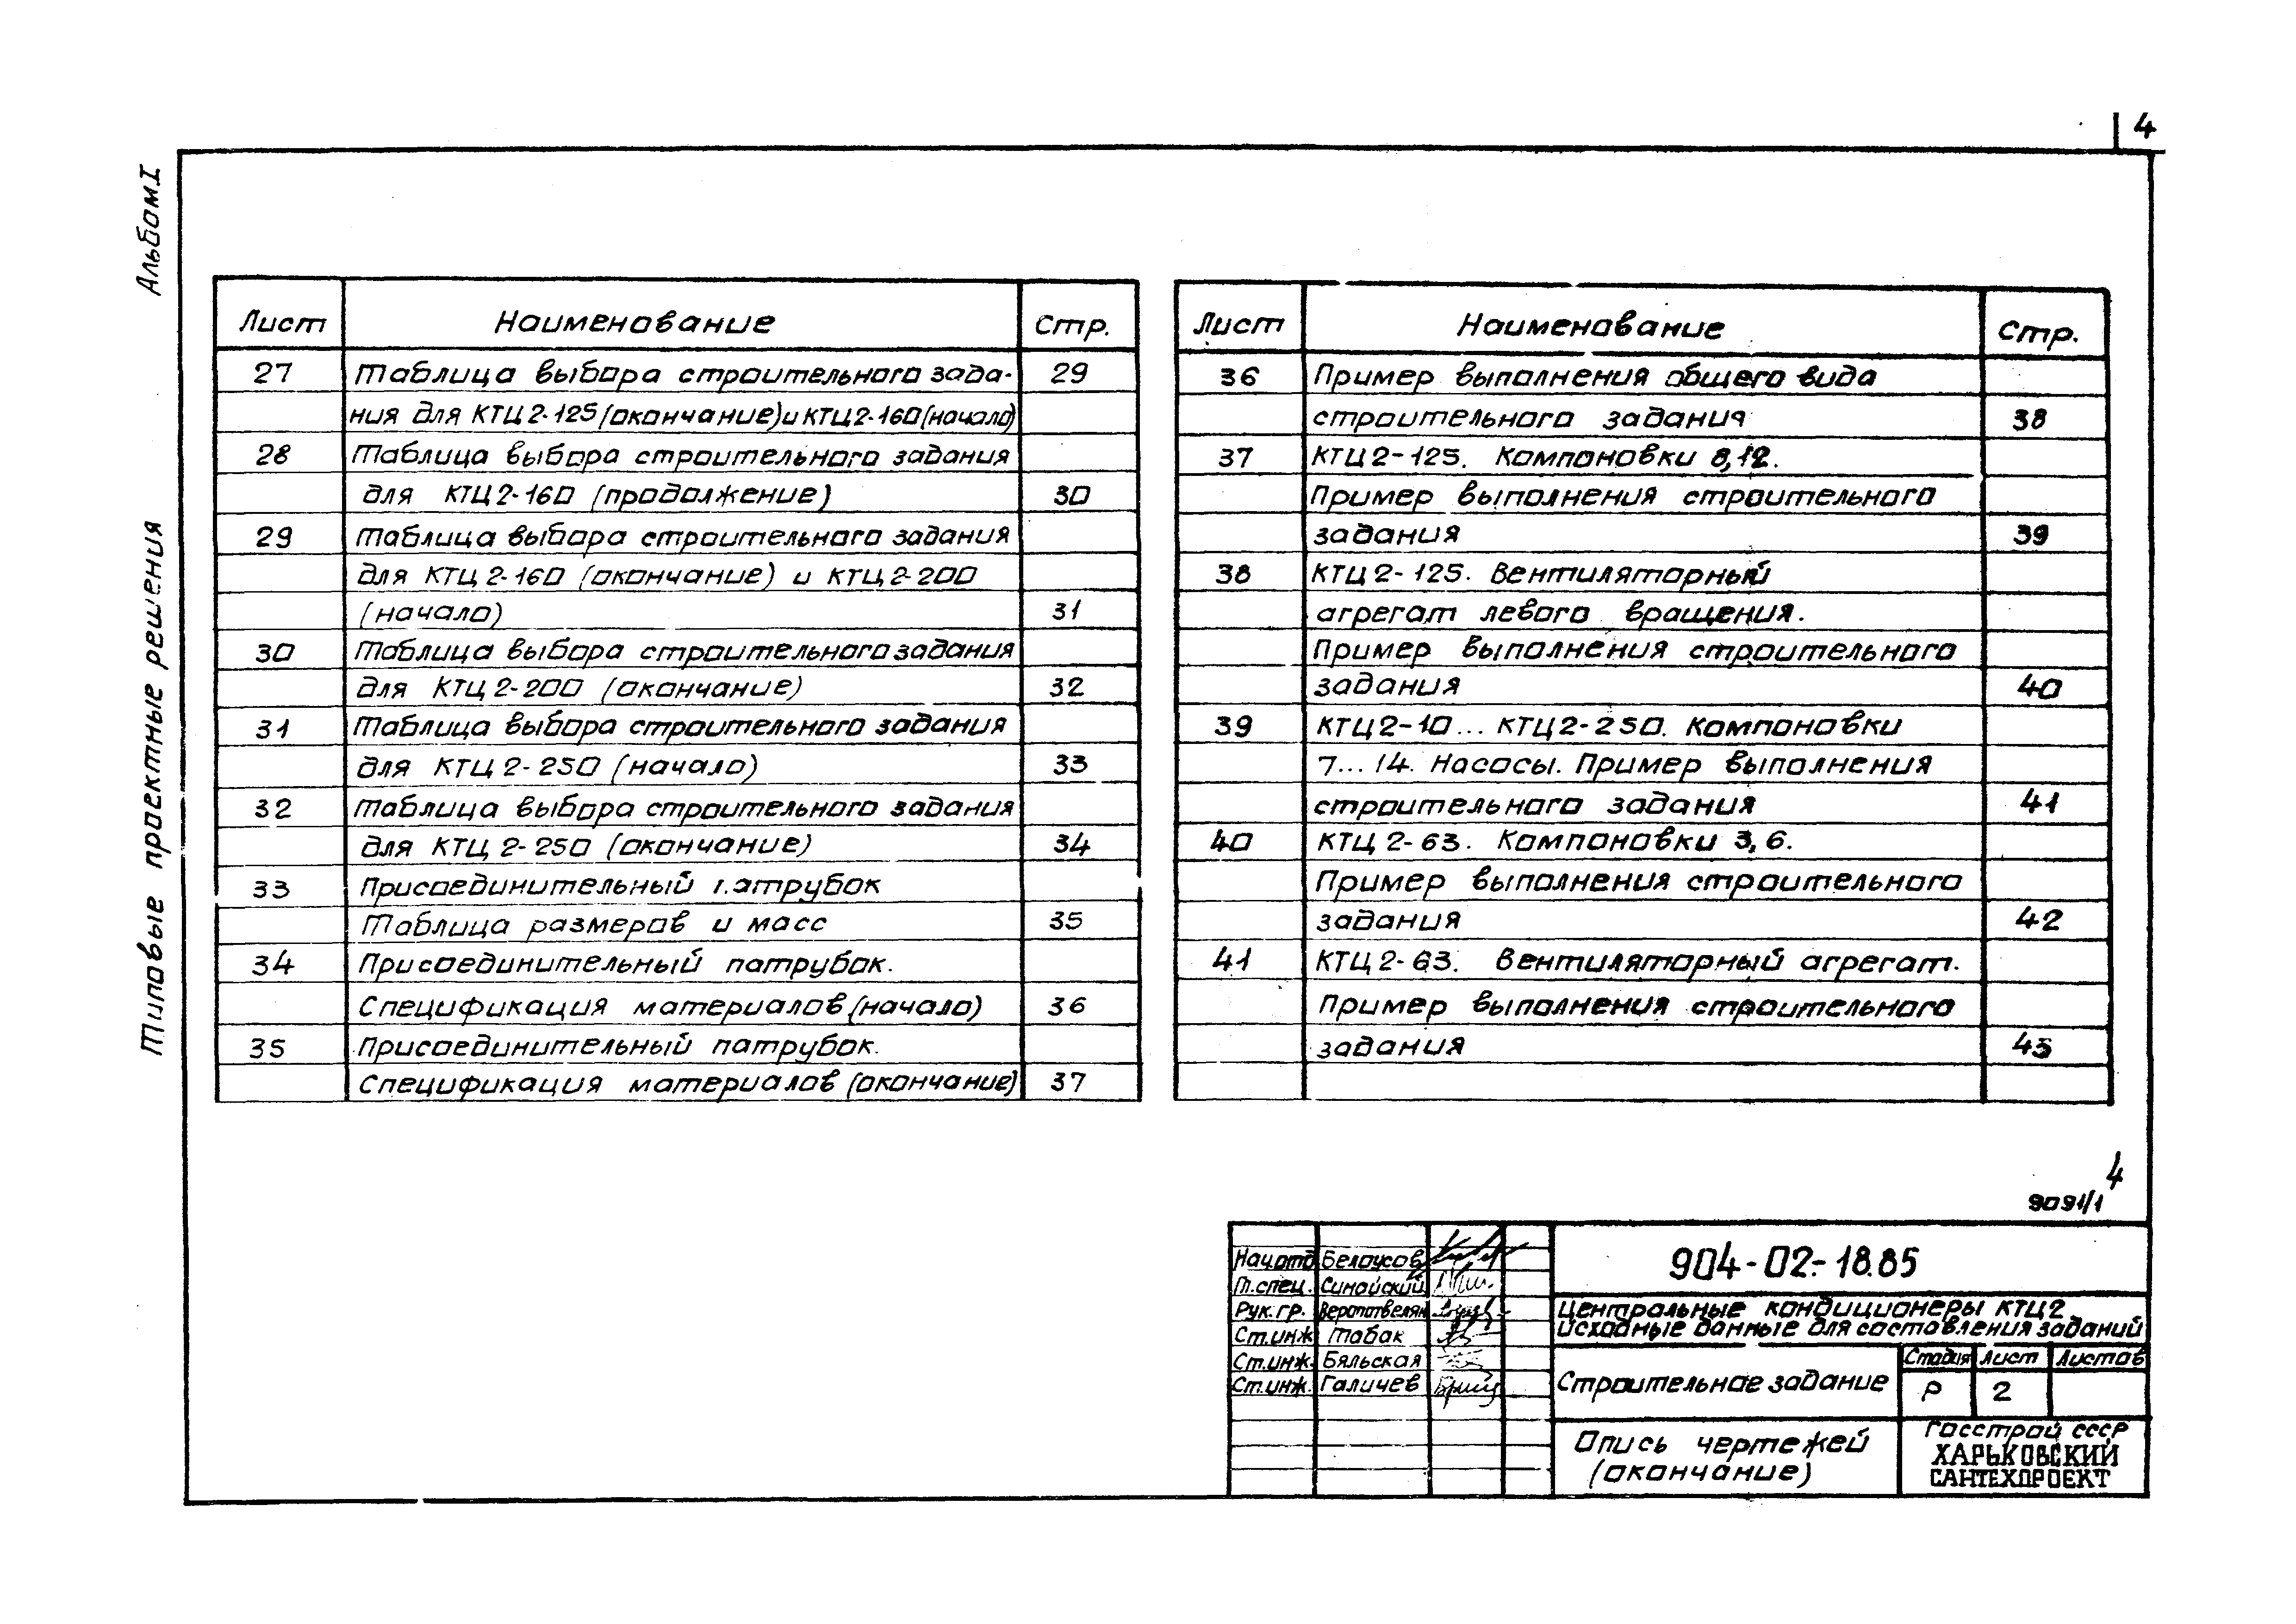 4
Альбом I
Типовые проектные решения
Лист Наименование Стр.
27 Таблица выбора строительного зада- 29
ния для КТЦ 2-125 (окончание) и КТЦ 2-160 (начало)
28 Таблица выбора строительного задания
для КТЦ 2-160 (продолжение) 30
29 Таблица выбора строительного задания
для КТЦ 2-160 (окончание) и КТЦ 2-200
(начало) 31
30 Таблица выбора строительного задания
для КТЦ 2-200 (окончание) 32
31 Таблица выбора строительного задания
для КТЦ 2-250 (начало) 33
32 Таблица выбора строительного задания
для КТЦ 2-250 (окончание) 34
33 Присоединительный патрубок
Таблица размеров и масс 35
34 Присоединительный патрубок.
Спецификация материалов (начало) 36
35 Присоединительный патрубок.
Спецификация материалов (окончание) 37
Лист Наименование Стр.
36 Пример выполнения общего вида
строительного задания 38
37 КТЦ 2-125. Компоновки 8,12.
Пример выполнения строительного
задания 39
38 КТЦ 2-125. Вентиляторный
агрегат левого вращения.
Пример выполнения строительного
задания 40
39 КТЦ 2-10... КТЦ 2-250. Компоновки
7...14. Насосы. Пример выполнения
строительного задания 41
40 КТЦ 2-63. Компоновки 3, 6.
Пример выполнения строительного
задания 42
41 КТЦ 2-63. Вентиляторный агрегат.
Пример выполнения строительного
задания 43
4
9091/1
Нач.отд Белоусов
Гл.спец. Синайский
Рук.гр.
Ст.инж Табак
Ст.инж. Бяльская
Ст.инж. Галичев
904-02-18.85
Центральные кондиционеры КТЦ 2
Исходные данные для составления заданий
Строительное задание
Стадия Лист Листов
Р 2
Опись чертежей
(окончание)
Госстрой СССР
ХАРЬКОВСКИЙ
САНТЕХПРОЕКТ